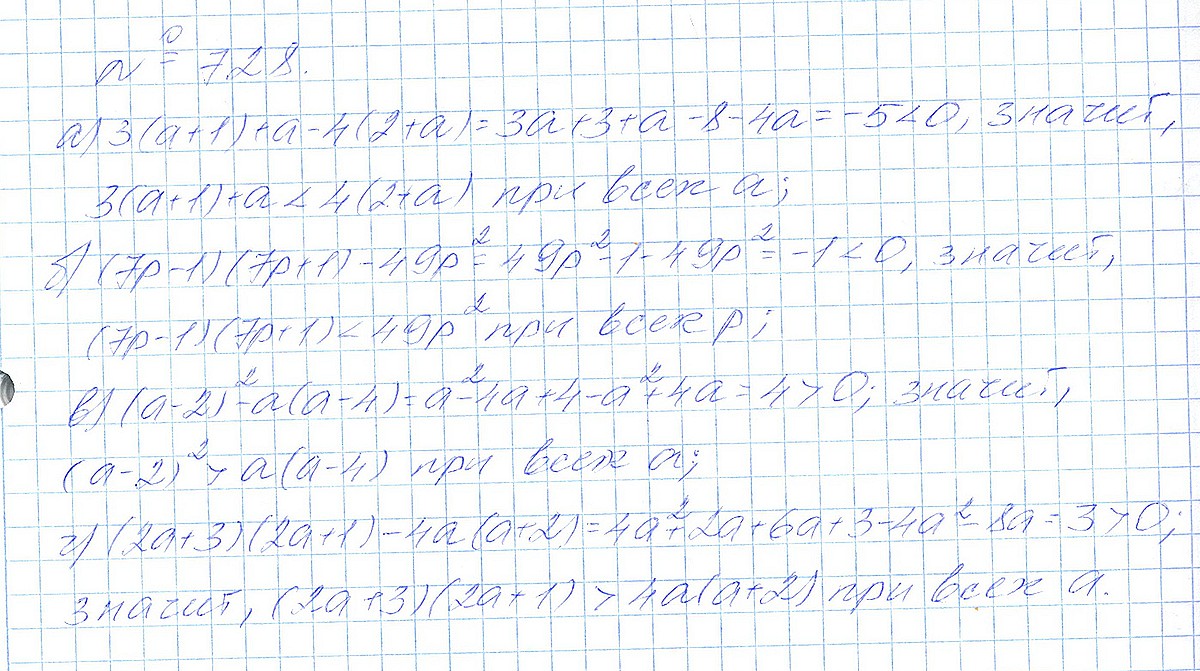 № 728.
а) 3(a+1)+a-4(2+a)=3a+3+a-8-4a=-5<0, значит,
3(a+1)+a<4(2+a) при всех a;
б) (7p-1)(7p+1)-49p²=49p²-1-49p²=-1<0, значит,
(7p-1)(7p+1)<49p² при всех p;
в) (a-2)²-a(a-4)=a²-4a+4-a²+4a=4>0; значит,
(a-2)²>a(a-4) при всех a;
г) (2a+3)(2a+1)-4a(a+2)=4a²+2a+6a+3-4a²-8a=3>0;
значит, (2a+3)(2a+1)>4a(a+2) при всех a.